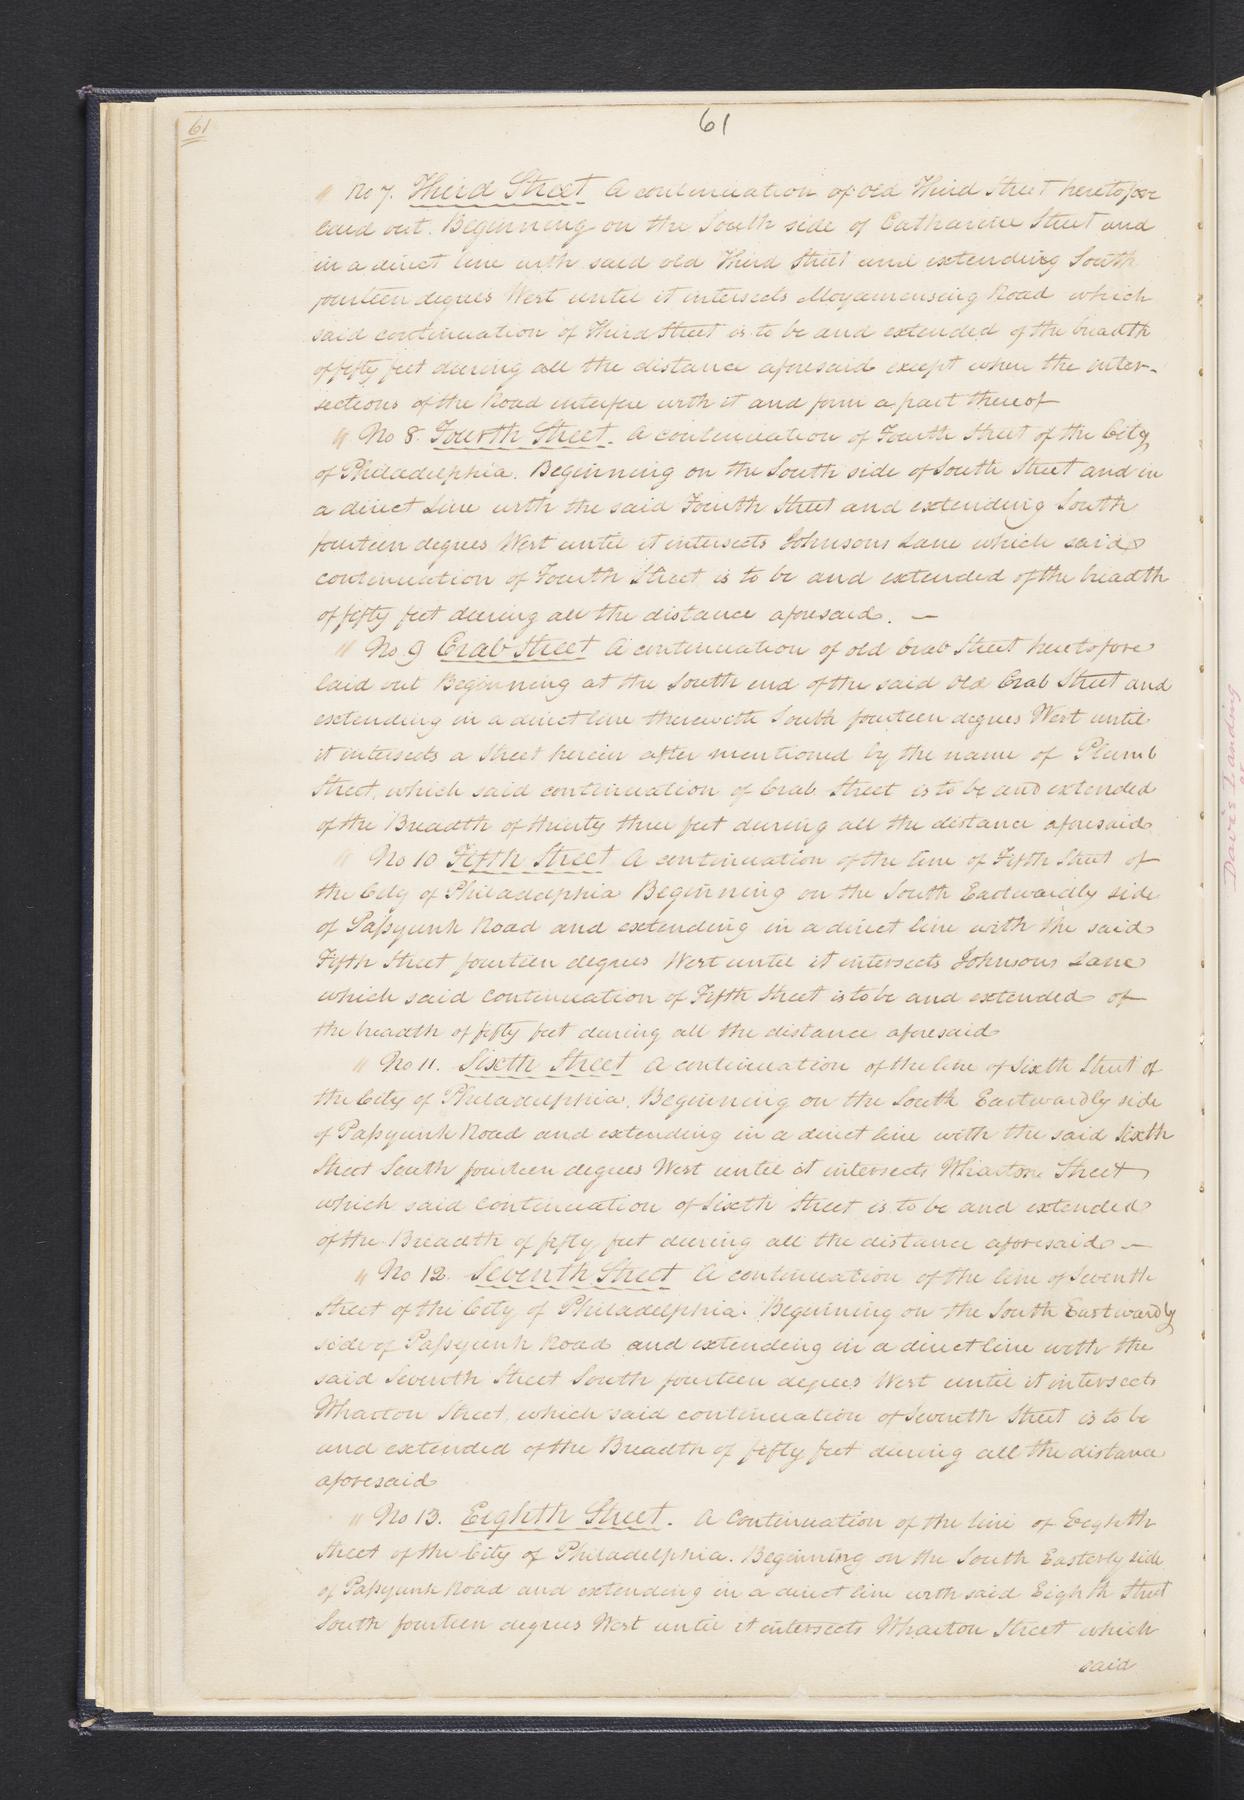 61
61
" No 7. Third Street A continuation of old Third Street heretofore
laid out. Beginning on the South side of Catharine Street and
in a direct line with said old Third Street and extending South
fourteen degrees West until it intersects Moyamensing Road which
said continuation of Third Street is to be and extended of the breadth
of fifty feet during all the distance aforesaid except when the inter-
sections of the Road interfere with it and form a part thereof
" No 8. Fourth Street. A continuation of Fourth Street of the City
of Philadelphia. Beginning on the South side of South Street and in
a direct Line with the said Fourth Street and extending South
fourteen degrees West until it intersects Johnsons Lane which said
continuation of Fourth Street is to be and extended of the breadth
of fifty feet during all the distance aforesaid. —
" No 9 Crab Street A continuation of old Crab Street heretofore
laid out Beginning at the South end of the said Old Crab Street and
extending in a direct line therewith South fourteen degrees West until
it intersects a Street herein after mentioned by the name of Plumb
Street, which said continuation of Crab Street is to be and extended
of the Breadth of thirty three feet during all the distance aforesaid
" No 10 Fifth Street A continuation of the line of Fifth Street of
the City of Philadelphia Beginning on the South Eastwardly side
of Passyunk Road and extending in a direct line with the said
Fifth Street fourteen degrees West until it intersects Johnsons Lane
which said continuation of Fifth Street is to be and extended of
the breadth of fifty feet during all the distance aforesaid
" No 11. Sixth Street A continuation of the line of Sixth Street of
the City of Philadelphia. Beginning on the South Eastwardly side
of Passyunk Road and extending in a direct line with the said Sixth
Street South fourteen degrees West until it intersects Wharton Street
which said continuation of Sixth Street is to be and extended
of the Breadth of fifty feet during all the distance aforesaid —
" No 12. Seventh Street A continuation of the line of Seventh
Street of the City of Philadelphia. Beginning on the South Eastwardly
side of Passyunk Road and extending in a direct line with the
said Seventh Street South fourteen degrees West until it intersects
Wharton Street, which said continuation of Seventh Street is to be
and extended of the Breadth of fifty feet during all the distance
aforesaid
" No 13. Eighth Street. A Continuation of the line of Eighth
Street of the City of Philadelphia. Beginning on the South Easterly side
of Passyunk Road and extending in a direct line with said Eighth Street
South fourteen degrees West until it intersects Wharton Street which
said
Davis Landing